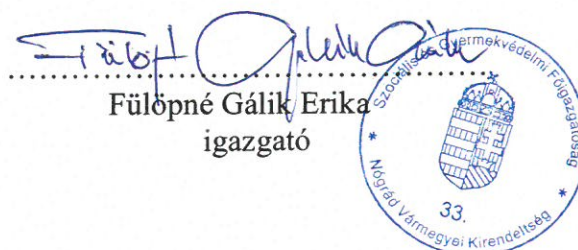 Fülöpné Gálik Erika
igazgató
Szociális és Gyermekvédelmi Főigazgatóság
* Nógrád Vármegyei Kirendeltség *
33.